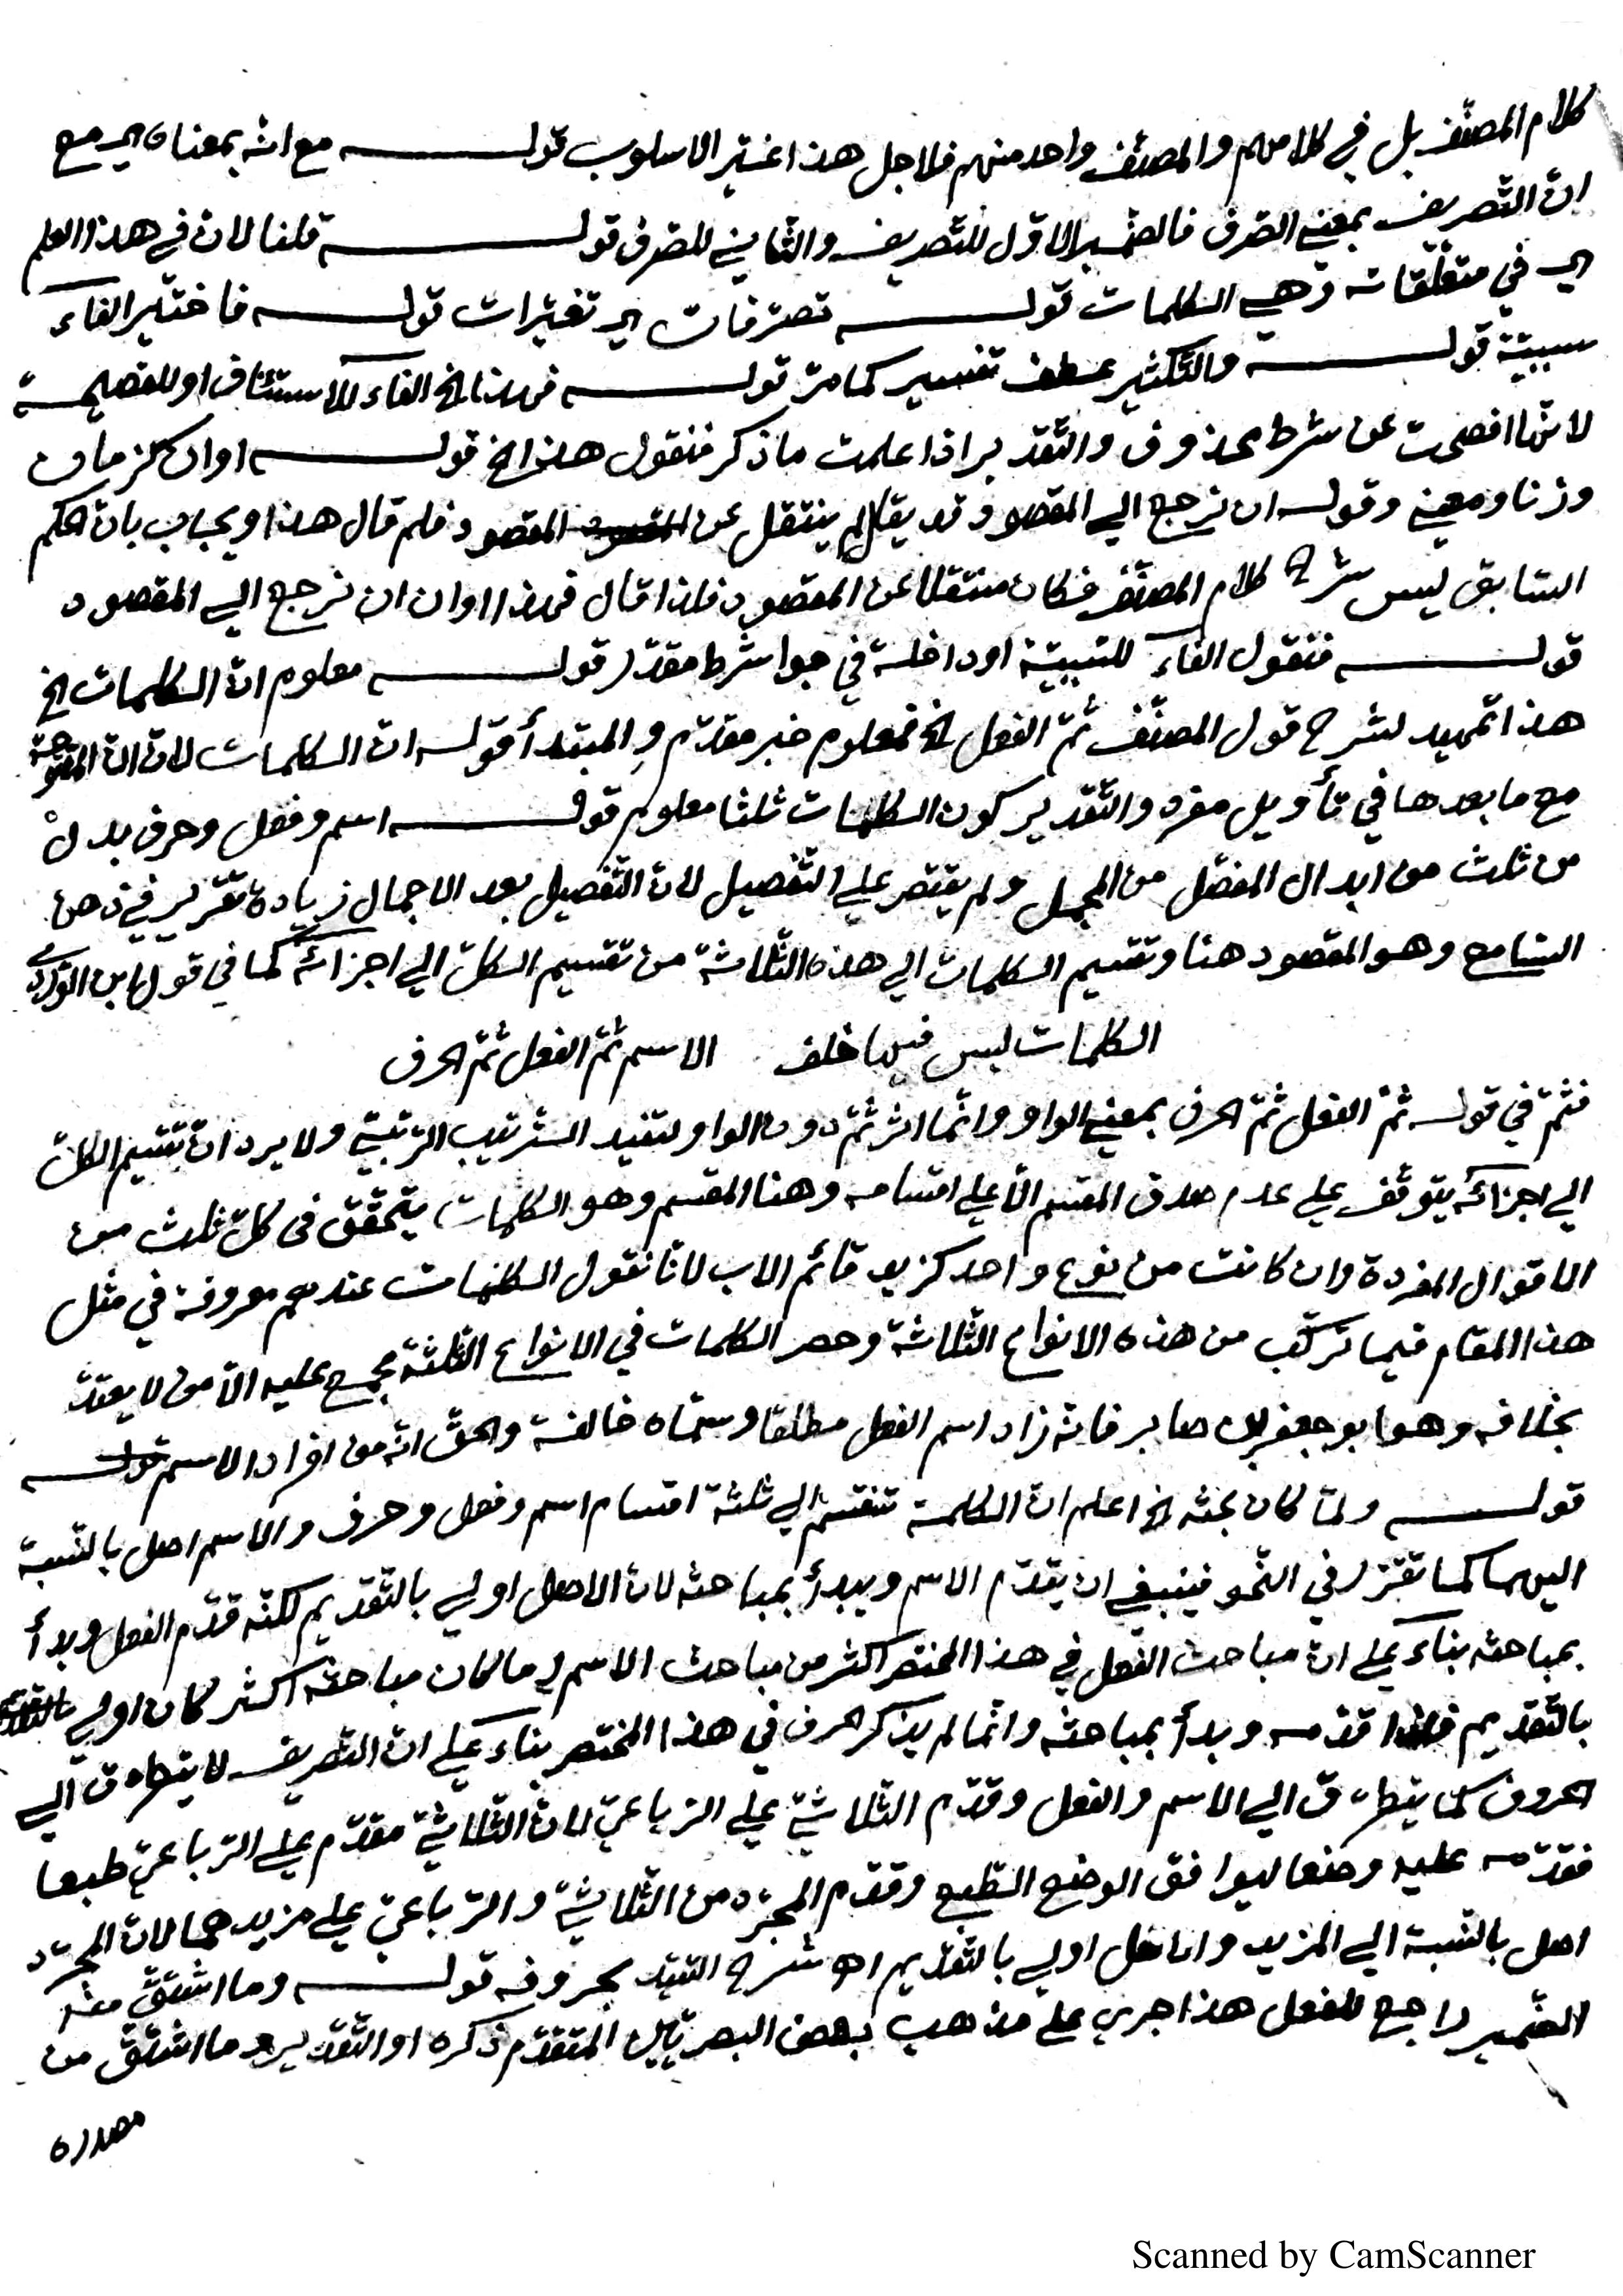 كلام المصنّف بل في كلامهم والمصنّف واحد منهم فلاجل هذا غيّر الاسلوب قولـه مع انّه بمعناه اي مع
انّ التّصريف بمعني الصّرف فالضّمير الاوّل للتّصريف والثّاني للصّرف قولـه قلنا لانّ في هذا العلم
اي في متعلّقاته وهي الكلمات قولـه تصرّفات اي تغيّرات قولـه فاختير الفاء
سببيّة قولـه والتّكثير عطف تفسير كما مرّ قولـه فهذا الخ الفاء للاستئناف او للفصيحة
لانّها افصحت عن شرط محذوف والتّقدير اذا علمت ما ذكر فنقول هذا الخ قولـه اوان كزمان
وزنا ومعني وقولـه ان نرجع الي المقصود قد يقال لم ينتقل عن المقصود فلم قال هذا ويجاب بانّ الحكم
السّابق ليس شرح كلام المصنّف فكان منتقلا عن المقصود فلذا قال فهذا اوان ان نرجع الي المقصود
قولـه فنقول الفاء للسّببيّة او داخلة في جواب شرط مقدّر قولـه معلوم انّ الكلمات الخ
هذا تمهيد لشرح قول المصنّف ثمّ الفعل الخ فمعلوم خبر مقدّم والمبتدأ قولـه انّ الكلمات لانّ انّ المفتوحة
مع ما بعدها في تأويل مفرد والتّقدير كون الكلمات ثلثا معلوم قولـه اسم وفعل وحرف بدل
من ثلث من ابدال المفصّل من المجمل ولم يقتصر علي التّفصيل لانّ التّفصيل بعد الاجمال زيادة تقرير في ذهن
السّامع وهو المقصود هنا وتقسيم الكلمات الي هذه الثّلاثة من تقسيم الكلّ الي اجزائه كما في قول ابن الوردي
الكلمات ليس فيها خلف الاسم ثمّ الفعل ثمّ الحرف
فثمّ في قولـه ثمّ الفعل ثمّ الحرف بمعني الواو وانّما اثر ثمّ دون الواو لتفيد التّرتيب الرّتبيّ ولا يرد انّ تقسيم الكلّ
الي اجزائه يتوقّف علي عدم صدق المقسم الّا علي اقسامه وهنا المقسم وهو الكلمات يتحقّق في كلّ ثلث من
الاقوال المفردة وان كانت من نوع واحد كزيد قائم الاب لانّا نقول الكلمات عندهم معروفة في مثل
هذا المقام فيما تركّب من هذه الانواع الثّلاثة وحصر الكلمات في الانواع الثّلثة مجمع عليه الّا من لا يعتدّ
بخلافه وهو ابو جعفر بن صابر فانّه زاد اسم الفعل مطلقا وسمّاه خالفة والحقّ انّه من افراد الاسم قولـه
قولـه ولمّا كان بحثه الخ اعلم انّ الكلمة تنقسم الي ثلثة اقسام اسم وفعل وحرف والاسم اصل بالنّسبة
اليهما كما تقرّر في النّحو فينبغي ان يقدّم الاسم ويبدأ بمباحثه لانّ الاصل اولي بالتّقديم لكنّه قدّم الفعل وبدأ
بمباحثه بناء علي انّ مباحث الفعل في هذا المختصر اكثر من مباحث الاسم وما كان مباحثه اكثر كان اولي
بالتّقديم فلذا قدّمه وبدأ بمباحثه وانّما لم يذكر الحرف في هذا المختصر بناء علي انّ التّصريف لا يتطرّق الي
الحروف كما يتطرّق الي الاسم والفعل وقدّم الثّلاثيّ علي الرّباعيّ لانّ الثّلاثيّ مقدّم علي الرّباعيّ طبعا
فقدّمه عليه وضعا ليوافق الوضع الطّبع وقدّم المجرّد من الثّلاثيّ والرّباعيّ علي مزيدهما لانّ المجرّد
اصل بالنّسبة الي المزيد والاصل اولي بالتّقديم اهـ شرح السّيّد بحروفه قولـه وما اشتقّ منه
الضّمير راجع للفعل هذا جري علي مذهب بعض البصريّين المتقدّم ذكره او التّقدير وما اشتقّ من
مصدره
Scanned by CamScanner